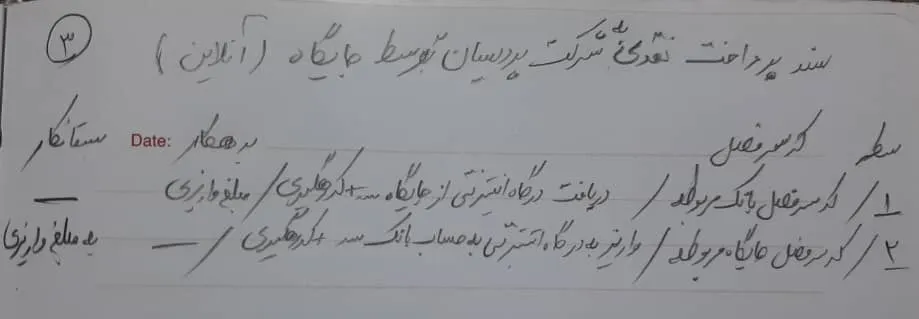 ۳
سند پرداخت نقدی به شرکت پردیسان توسط جایگاه (آنلاین)
سطر کد سرفصل Date: بدهکار ستانکار
۱/ کد سرفصل بانک مربوطه / دریافت درگاه اینترنتی از جایگاه سه + کد رهگیری / مبلغ واریزی —
۲/ کد سرفصل جایگاه مربوطه / واریز به درگاه اینترنتی به حساب بانک سه + کد رهگیری / — به مبلغ واریزی